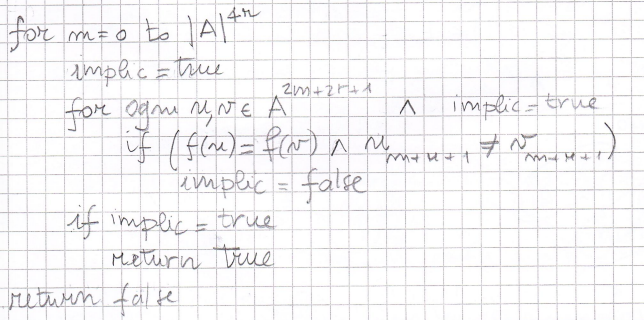 for m=0 to |A|^{4r}
implic = true
for ogni u,v ∈ A^{2m+2r+1} ∧ implic = true
if (f(u) = f(v) ∧ u_{m+r+1} ≠ v_{m+r+1})
implic = false
if implic = true
return true
return false